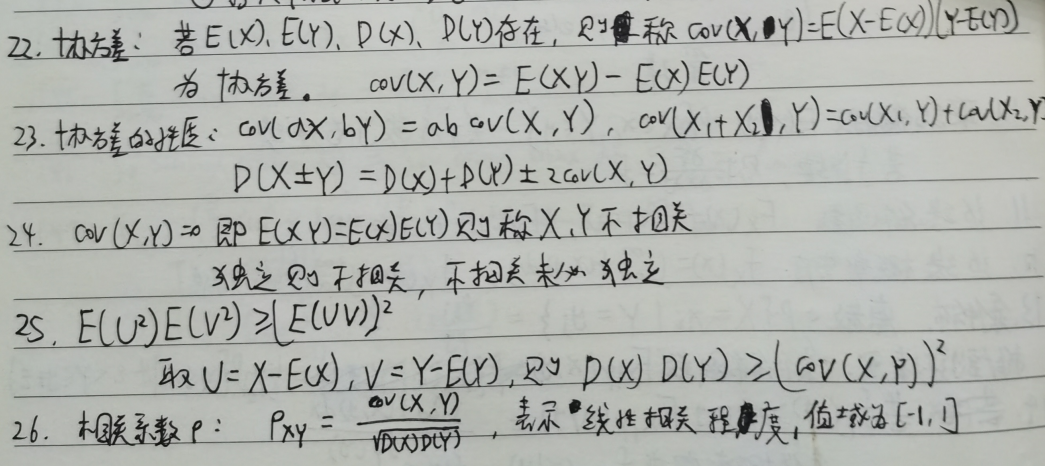 22. 协方差：若E(X)、E(Y)、D(X)、D(Y)存在，则称 cov(X,Y)=E(X-E(X))(Y-E(Y))
为协方差。 cov(X,Y)=E(XY)-E(X)E(Y)
23. 协方差的性质：cov(aX,bY)=ab cov(X,Y)，cov(X₁+X₂,Y)=cov(X₁,Y)+cov(X₂,Y)
D(X±Y)=D(X)+D(Y)±2cov(X,Y)
24. cov(X,Y)=0 即E(XY)=E(X)E(Y)则称X,Y不相关
独立则不相关，不相关未必独立
25. E(U²)E(V²)≥(E(UV))²
取U=X-E(X),V=Y-E(Y),则 D(X)D(Y)≥(cov(X,Y))²
26. 相关系数ρ： ρxy = cov(X,Y)/√D(X)D(Y) ，表示线性相关程度，值域为[-1,1]